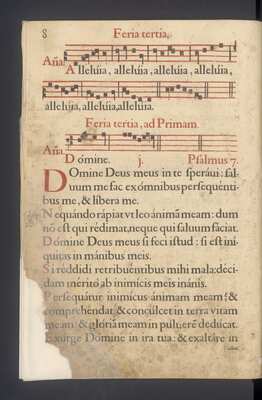 8
Feria tertia,
Aña. Alleluia, alleluia, alleluia, alleluia,
alleluia, alleluia, alleluia.
Feria tertia, ad Primam.
Aña. Domine. j. Psalmus 7.
DOmine Deus meus in te speraui: sal-
uum me fac ex omnibus persequenti-
bus me, & libera me.
Nequando rapiat vt leo animā meam: dum
nō est qui redimat, neque qui saluum faciat.
Domine Deus meus si feci istud: si est ini-
quitas in manibus meis.
Si reddidi retribuentibus mihi mala: deci-
dam merito ab inimicis meis inanis.
Persequatur inimicus animam meam: &
comprehendat, & conculcet in terra vitam
meam: & gloriā meam in puluerē deducat.
Exurge Domine in ira tua: & exaltare in